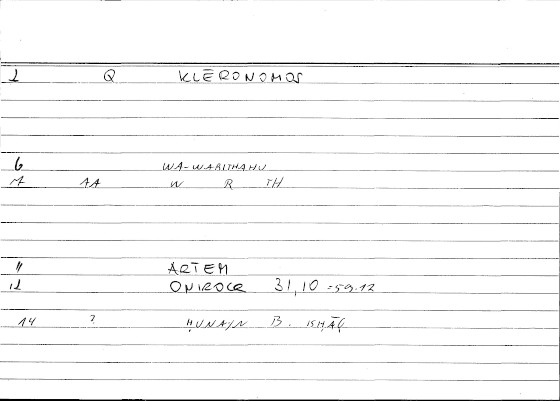 1 Q KLĒRONOMOS
6 WA-WARITHAHU
7 AA W R TH
11 ARTEM
12 ONIROCR 31,10 = 59.12
14 ? ḤUNAYN B. ISḤĀQ